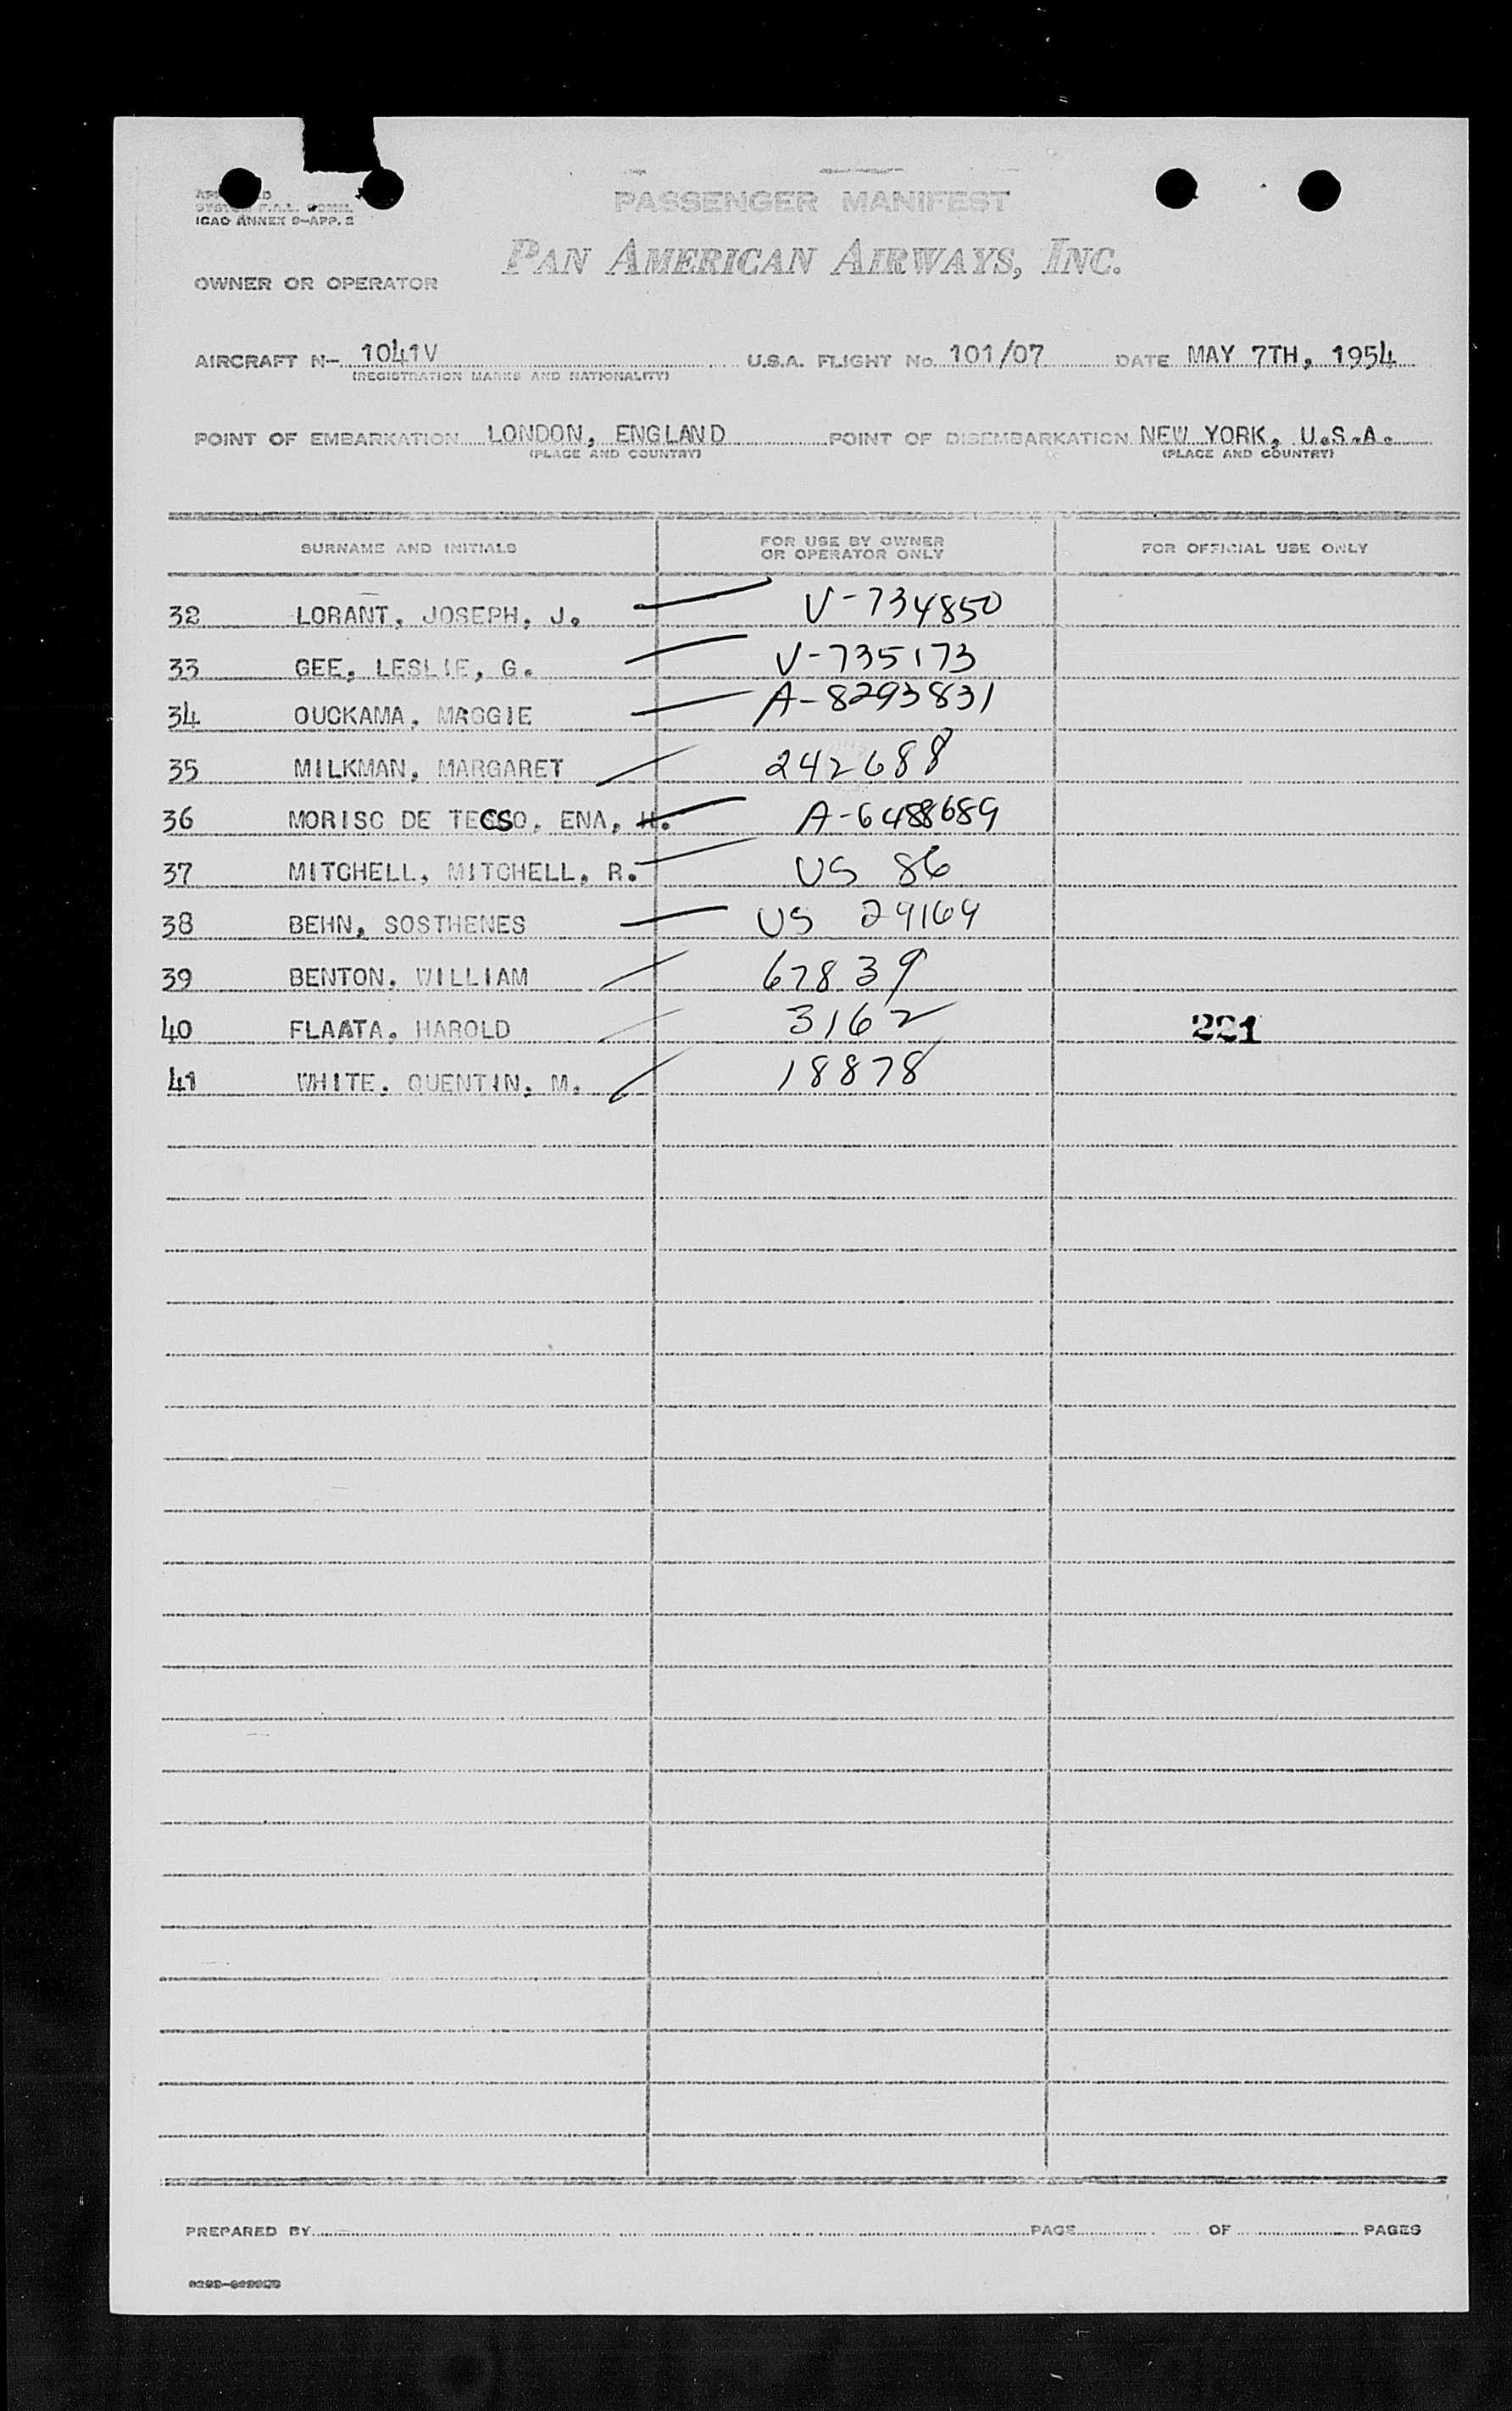 PASSENGER MANIFEST
SYSTEM F.A.L. COMM.
ICAO ANNEX 9-APP. 2
PAN AMERICAN AIRWAYS, INC.
OWNER OR OPERATOR
AIRCRAFT N- 1041V U.S.A. FLIGHT No. 101/07 DATE MAY 7TH, 1954
(REGISTRATION MARKS AND NATIONALITY)
POINT OF EMBARKATION LONDON, ENGLAND POINT OF DISEMBARKATION NEW YORK, U.S.A.
(PLACE AND COUNTRY) (PLACE AND COUNTRY)
SURNAME AND INITIALS FOR USE BY OWNER OR OPERATOR ONLY FOR OFFICIAL USE ONLY
32 LORANT, JOSEPH, J. V-734850
33 GEE, LESLIE, G. V-735173
34 OUCKAMA, MAGGIE A-8293831
35 MILKMAN, MARGARET 242688
36 MORISC DE TECSO, ENA, H. A-6488689
37 MITCHELL, MITCHELL, R. US 86
38 BEHN, SOSTHENES US 29169
39 BENTON, WILLIAM 67839
40 FLAATA, HAROLD 3162 221
41 WHITE, QUENTIN, M. 18878
PREPARED BY PAGE OF PAGES